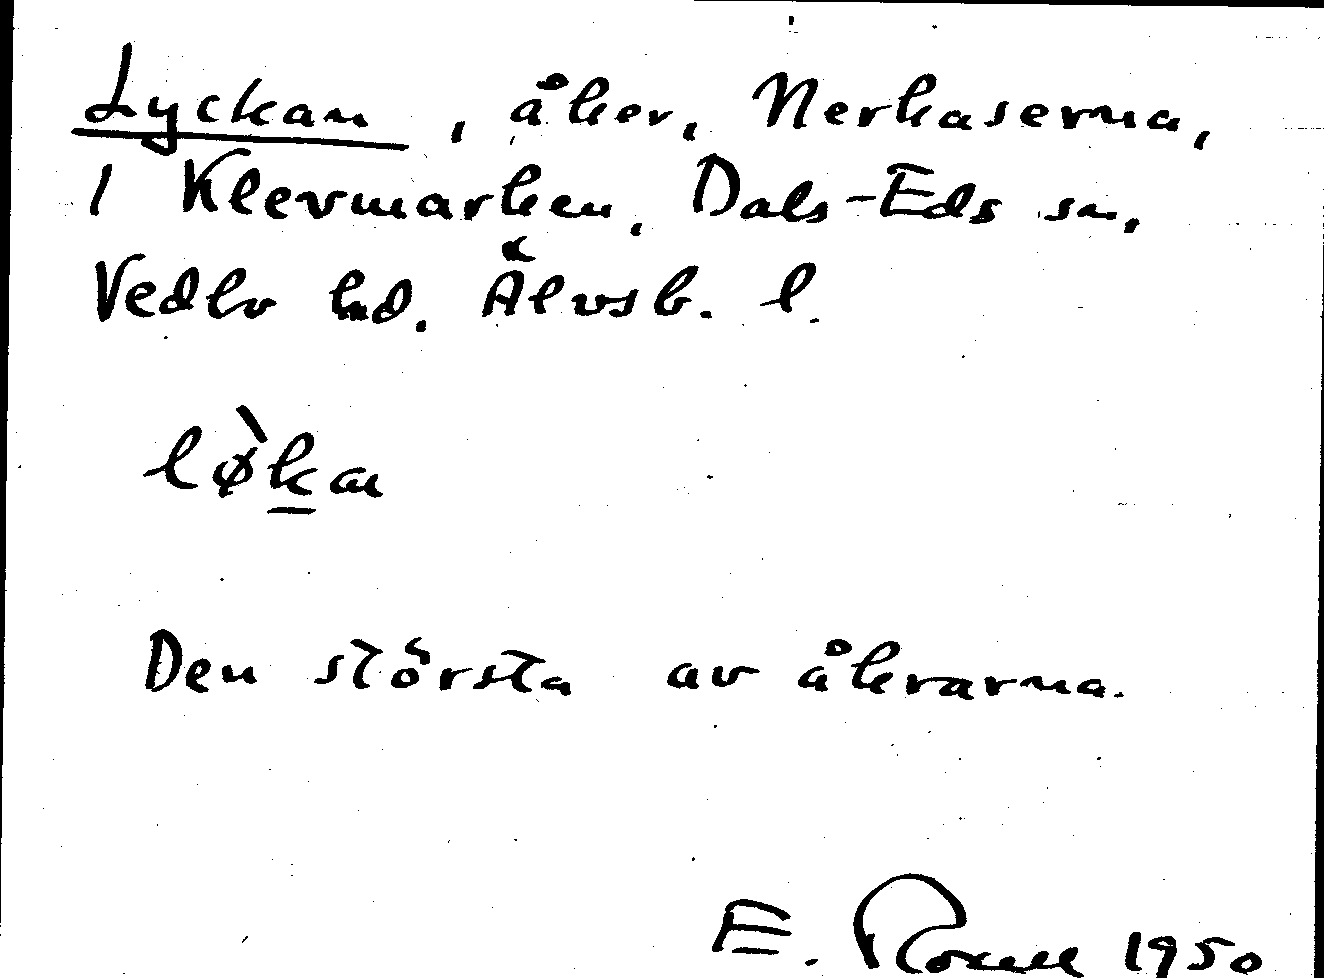 Lyckan, åker, Nerkaserna,
1 Klevmarken, Dals-Eds sn,
Vedbo hd. Älvsb. l.
lø̀kan
Den största av åkrarna.
E. 1950